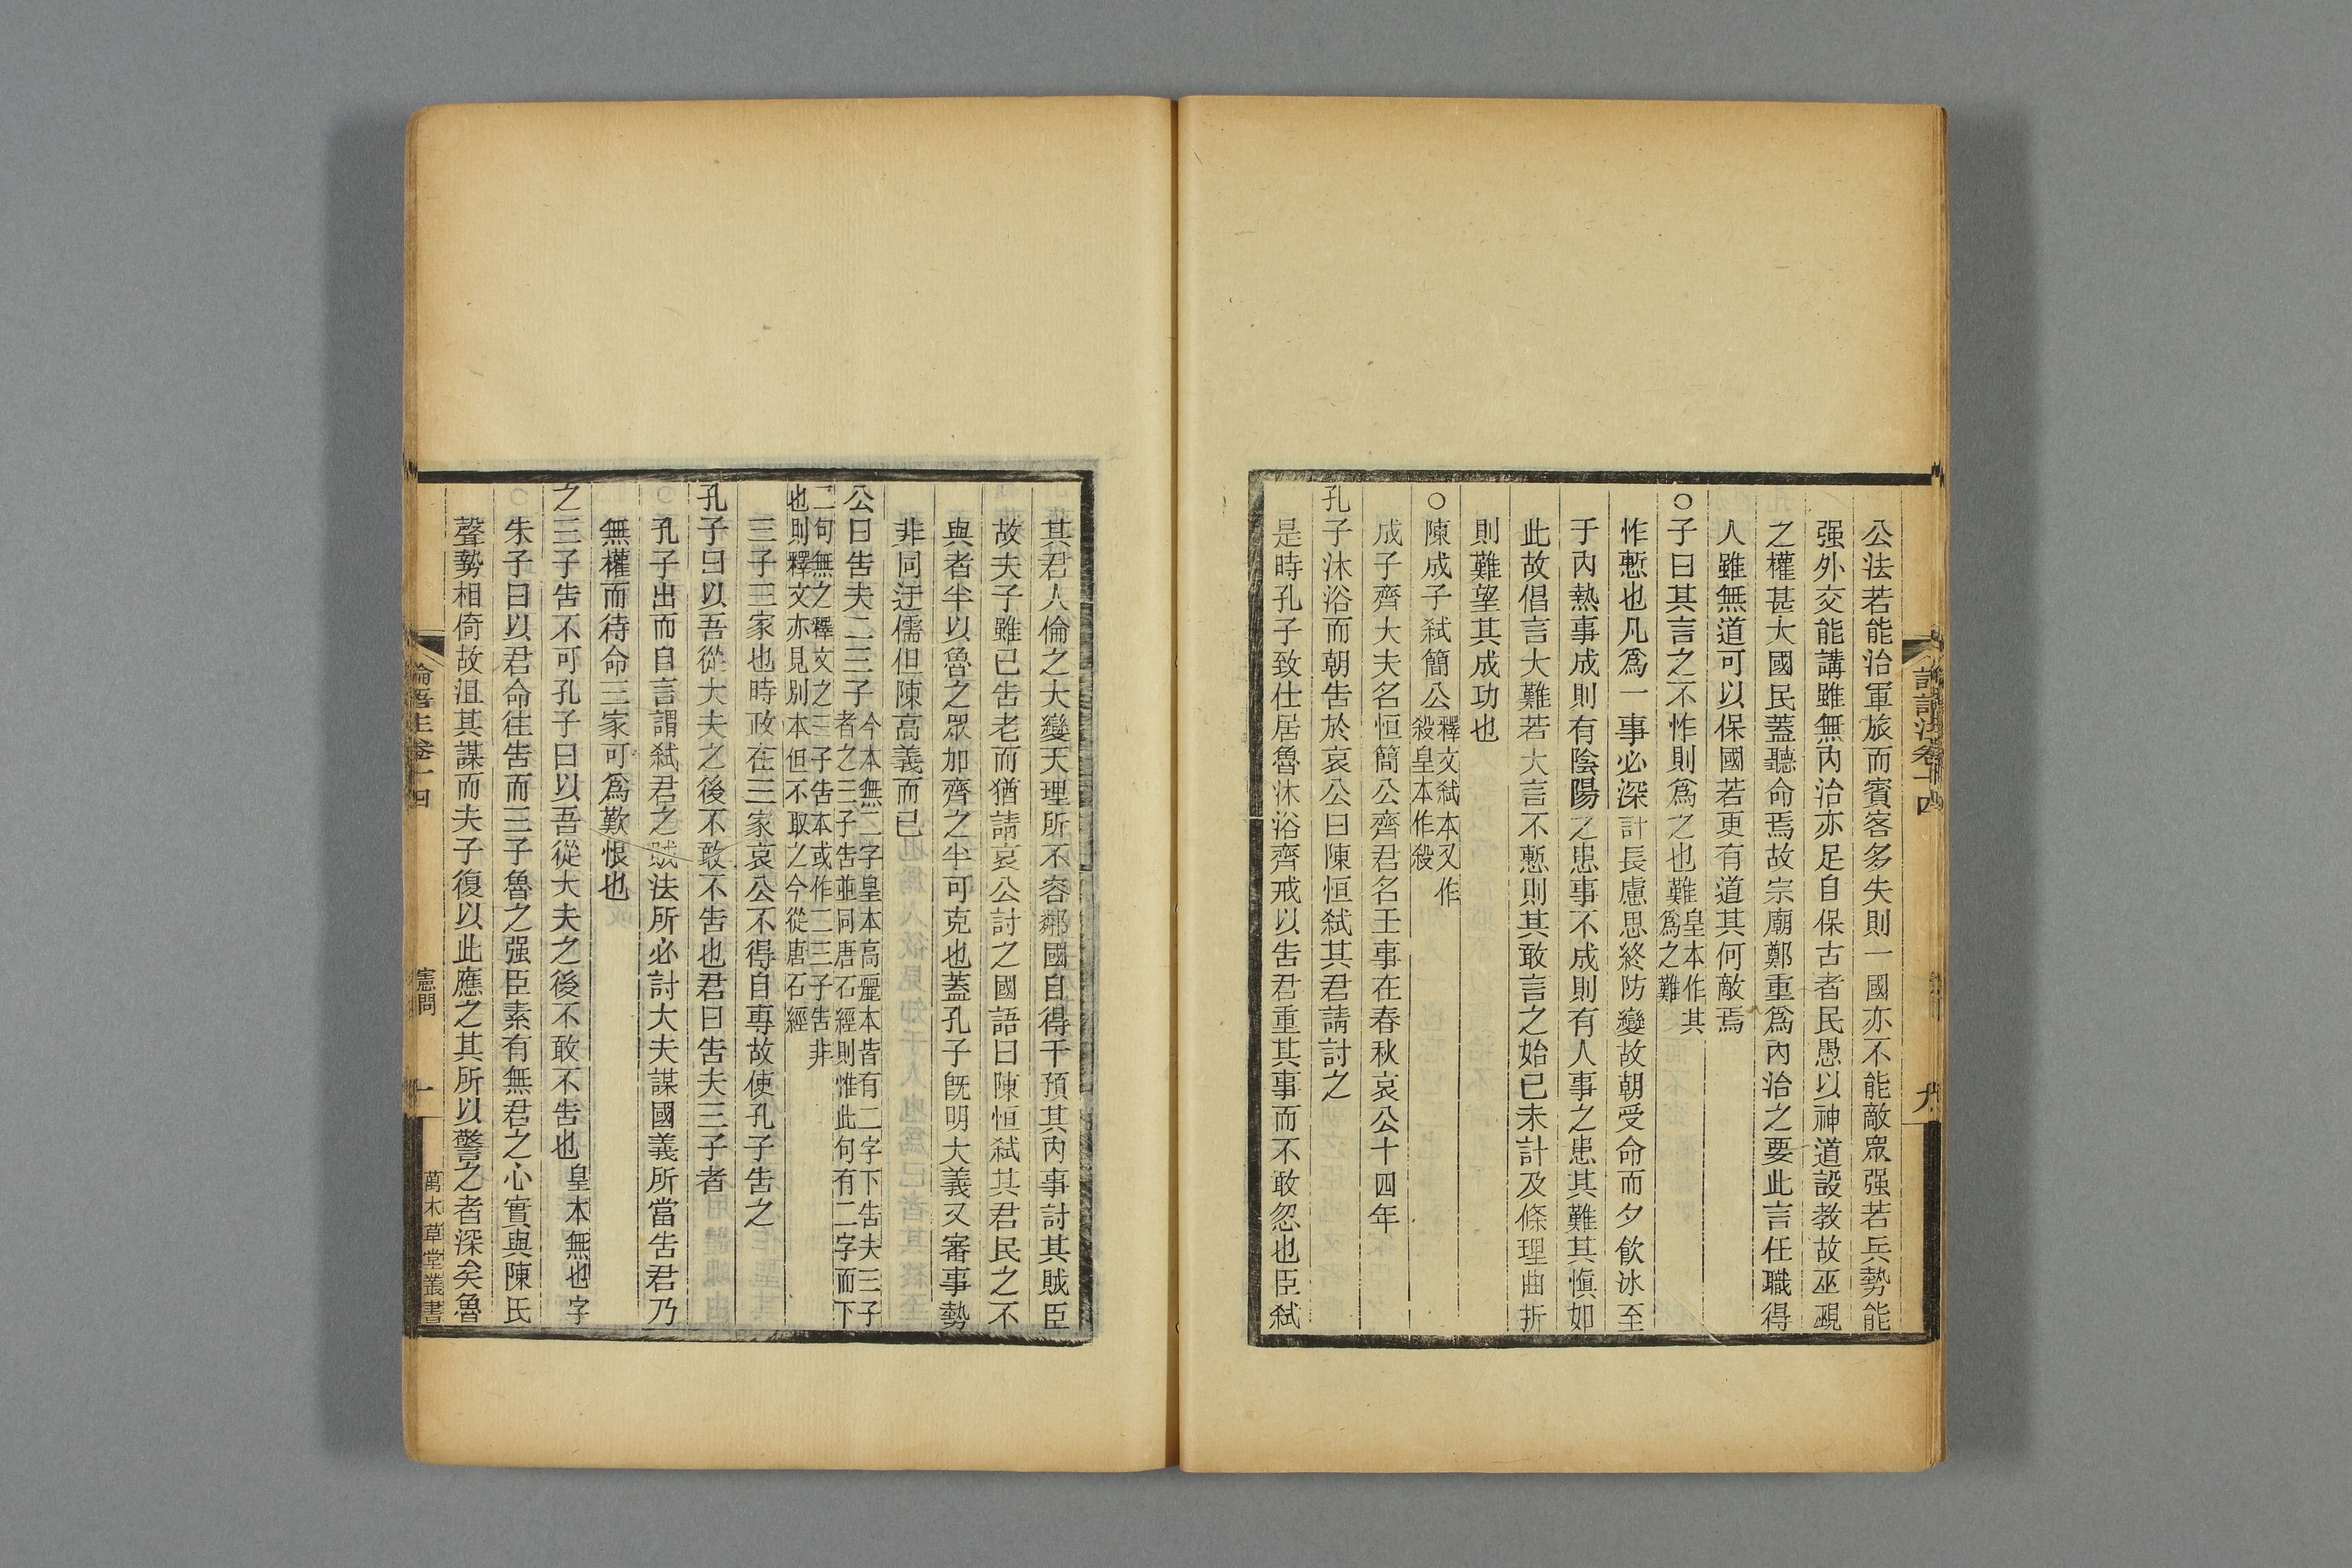 公法若能治軍旅而賓客多失則一國亦不能敵眾强若兵勢能
强外交能講雖無內治亦足自保古者民愚以神道設教故巫覡
之權甚大國民蓋聽命焉故宗廟鄭重爲內治之要此言任職得
人雖無道可以保國若更有道其何敵焉
○子曰其言之不怍則爲之也難皇本作其爲之難
怍慙也凡爲一事必深計長慮思終防變故朝受命而夕飮冰至
于內熱事成則有陰陽之患事不成則有人事之患其難其愼如
此故倡言大難若大言不慙則其敢言之始已未計及條理曲折
則難望其成功也
○陳成子弑簡公釋文弑本又作殺皇本作殺
成子齊大夫名恒簡公齊君名壬事在春秋哀公十四年
孔子沐浴而朝告於哀公曰陳恒弑其君請討之
是時孔子致仕居魯沐浴齊戒以告君重其事而不敢忽也臣弑
其君人倫之大變天理所不容鄰國自得干預其內事討其賊臣
故夫子雖已告老而猶請哀公討之國語曰陳恒弑其君民之不
與者半以魯之眾加齊之半可克也蓋孔子旣明大義又審事勢
非同迂儒但陳高義而已
公曰告夫二三子今本無二字皇本高麗本皆有二字下告夫三子者之三子告並同唐石經則惟此句有二字而下
二句無之釋文之三子告本或作二三子告非也則釋文亦見別本但不取之今從唐石經
三子三家也時政在三家哀公不得自專故使孔子告之
孔子曰以吾從大夫之後不敢不告也君曰告夫三子者
孔子出而自言謂弑君之賊法所必討大夫謀國義所當告君乃
無權而待命三家可爲歎恨也
之三子告不可孔子曰以吾從大夫之後不敢不告也皇本無也字
朱子曰以君命往告而三子魯之强臣素有無君之心實與陳氏
聲勢相倚故沮其謀而夫子復以此應之其所以警之者深矣魯
論語注卷十四 憲問 萬木草堂叢書